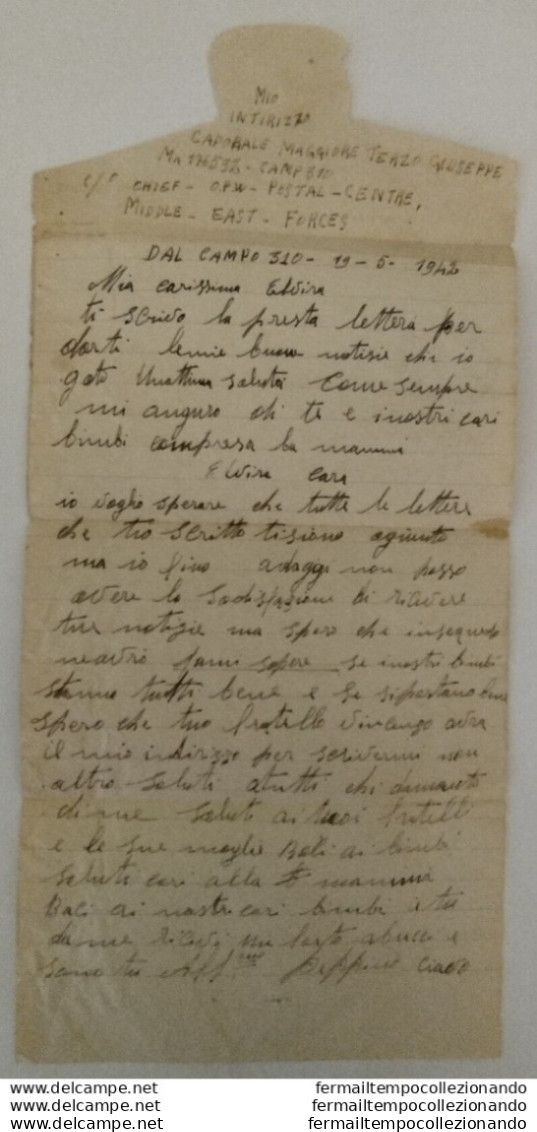 Mio
INTIRIZZO
CAPORALE MAGGIORE TERZO GIUSEPPE
CAMP 310
c/o CHIEF - O.P.W - POSTAL - CENTRE,
MIDDLE - EAST - FORCES
DAL CAMPO 310 - 19 - 5 - 1942
Mia carissima Elvira
ti scrivo la presta lettera per
darti lemie buone notisie che io
godo salute Come sempre
mi auguro di te e inostri cari
bimbi compresa la mamma
Elvira Cara
io voglio sperare che tutte le lettere
che tio scritto tisiano
ma io fino adoggi non posso
avere la sodisfazione di ricevere
tue notisie ma spero che insequedo
neavro fami sapere se inostri bimbi
stanno tutti bene e se siportano bene
spero che tuo fratello Vincenzo avra
il mio indirizzo per scrivermi non
altro saluti atutti chi
di me saluti ai tuoi fratelli
e le sue moglie Baci ai bimbi
saluti cari alla mamma
Baci ai nostri cari bimbi e tu
dame ricevi un forte abracci e
sono tu Aff Peppino ciao
www.fermailtempocollezionando.com fermailtempocollezionando
www.fermailtempocollezionando.com fermailtempocollezionando
www.fermailtempocollezionando.com fermailtempocollezionando